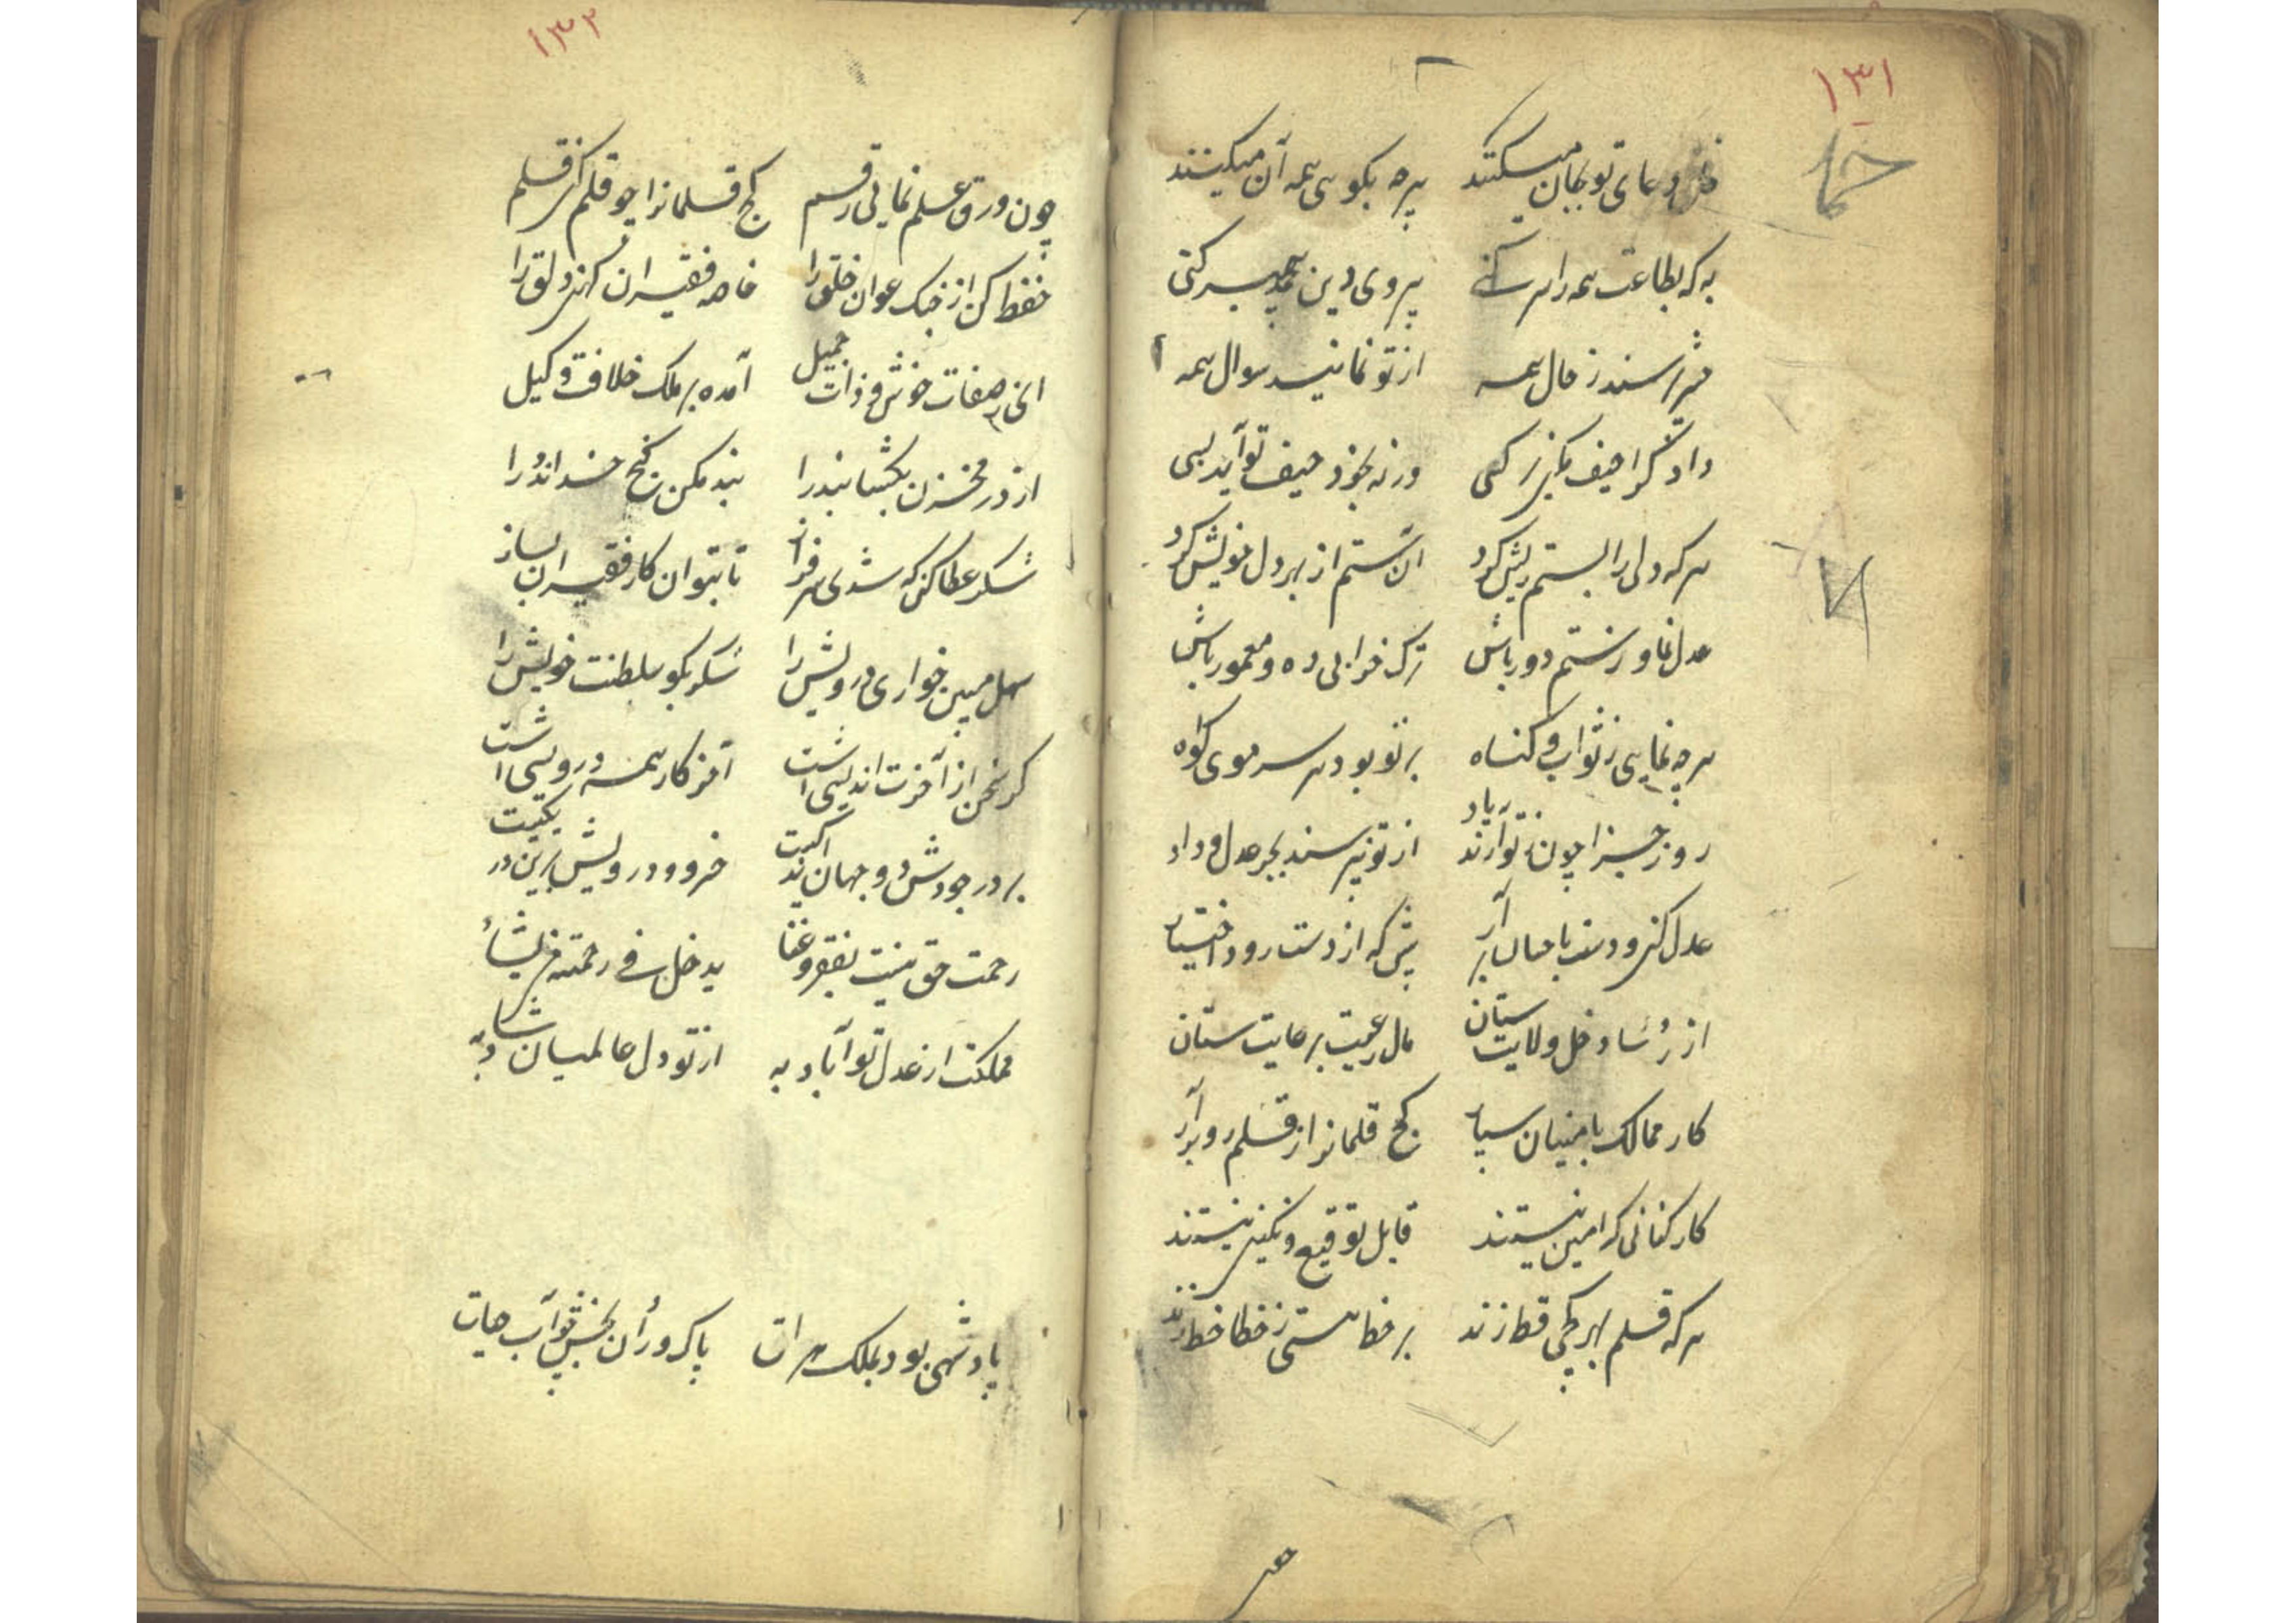 ۱۳۱
خلق دعای تو بجان میکنند هر چه بگویی همه آن میکنند
به که بطاعت همه را سر کنی پیروی دین پیمبر کنی
حشر نپرسند ز حال همه از تو نمایند سوال همه
دادگرا حیف مکن بر کسی ورنه بخود حیف تو آید بسی
هر که دلی را بستم ریش کرد آن ستم از بهر دل خویش کرد
عدل نما وز ستم دور باش ترک خرابی ده و معمور باش
هر چه نمایی ز ثواب و گناه بر تو بود هر سر موی گواه
روز جزا چون ز تو آرند یاد از تو نپرسند بجز عدل و داد
عدل کن و دست باحسان بر آر پیش که از دست رود اختیار
از رؤسا دخل ولایت ستان مال رعیت برعایت ستان
کار ممالک بامینان سپار کج قلمانرا ز قلم رو برآر
کارکنانی که امین نیستند قابل توقیع و نگین نیستند
هر که قلم بهر کجی قط زند بر خط هستی ز خطا خط زند
۱۳۲
چون ورق عدل نمایی رقم کج قلمانرا چو قلم کن قلم
حفظ کن از جنک عوان خلق را خاصه فقیران کهن دلق را
ای ز صفات خوش و ذات جمیل آمده بر ملک خلافت وکیل
از در مخزن بکشا بند را بند مکن گنج خداوند را
شکر عطا کن که شدی سرفراز تا بتوان کار فقیران بساز
سهل مبین خواری درویش را شکر بگو سلطنت خویش را
گر سخن از آخرت اندیشی است آخر کار همه درویشی است
بر در جودش دو جهان اند کیست خسرو و درویش برین در یکیست
رحمت حق نیست بفقر و غنا یدخل فی رحمته من یشاء
مملکت از عدل تو آباد به از تو دل عالمیان شاد به
پادشهی بود بملک هرات پاک روان بخش چو آب حیات